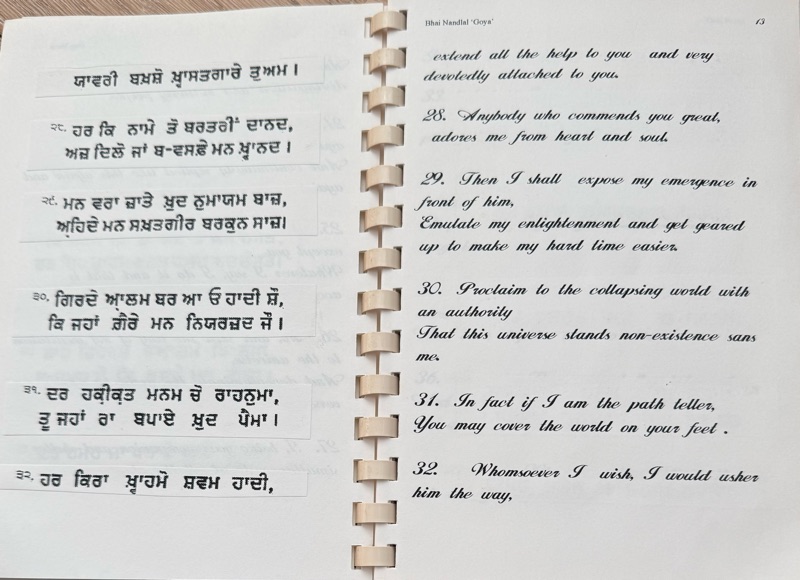 ਯਾਵਰੀ ਬਖ਼ਸ਼ੋ ਖ਼੍ਵਾਸਤਗਾਰੇ ਤੁਅਮ।
੨੮. ਹਰ ਕਿ ਨਾਮੇ ਤੋ ਬਰਤਰੀਂ ਦਾਨਦ,
ਅਜ਼ ਦਿਲੋ ਜਾਂ ਬ-ਵਸਫ਼ੇ ਮਨ ਖ਼੍ਵਾਨਦ।
੨੯. ਮਨ ਵਰਾ ਜ਼ਾਤੇ ਖ਼ੁਦ ਨੁਮਾਯਮ ਬਾਜ਼,
ਅਹਿਦੇ ਮਨ ਸਖ਼ਤਗੀਰ ਬਰਕੁਨ ਸਾਜ਼।
੩੦. ਗਿਰਦੇ ਆਲਮ ਬਰ ਆ ਓ ਹਾਦੀ ਸ਼ੌ,
ਕਿ ਜਹਾਂ ਗ਼ੈਰੇ ਮਨ ਨਿਯਰਜ਼ਦ ਜੌ।
੩੧. ਦਰ ਹਕੀਕਤ ਮਨਮ ਚੋ ਰਾਹਨੁਮਾ,
ਤੂ ਜਹਾਂ ਰਾ ਬਪਾਏ ਖ਼ੁਦ ਪੈਮਾ।
੩੨. ਹਰ ਕਿਰਾ ਖ਼੍ਵਾਹਮੋ ਸ਼ਵਮ ਹਾਦੀ,
Bhai Nandlal 'Goya' 13
extend all the help to you and very
devotedly attached to you.
28. Anybody who commends you great,
adores me from heart and soul.
29. Then I shall expose my emergence in
front of him,
Emulate my enlightenment and get geared
up to make my hard time easier.
30. Proclaim to the collapsing world with
an authority
That this universe stands non-existence sans
me.
31. In fact if I am the path teller,
You may cover the world on your feet .
32. Whomsoever I wish, I would usher
him the way,